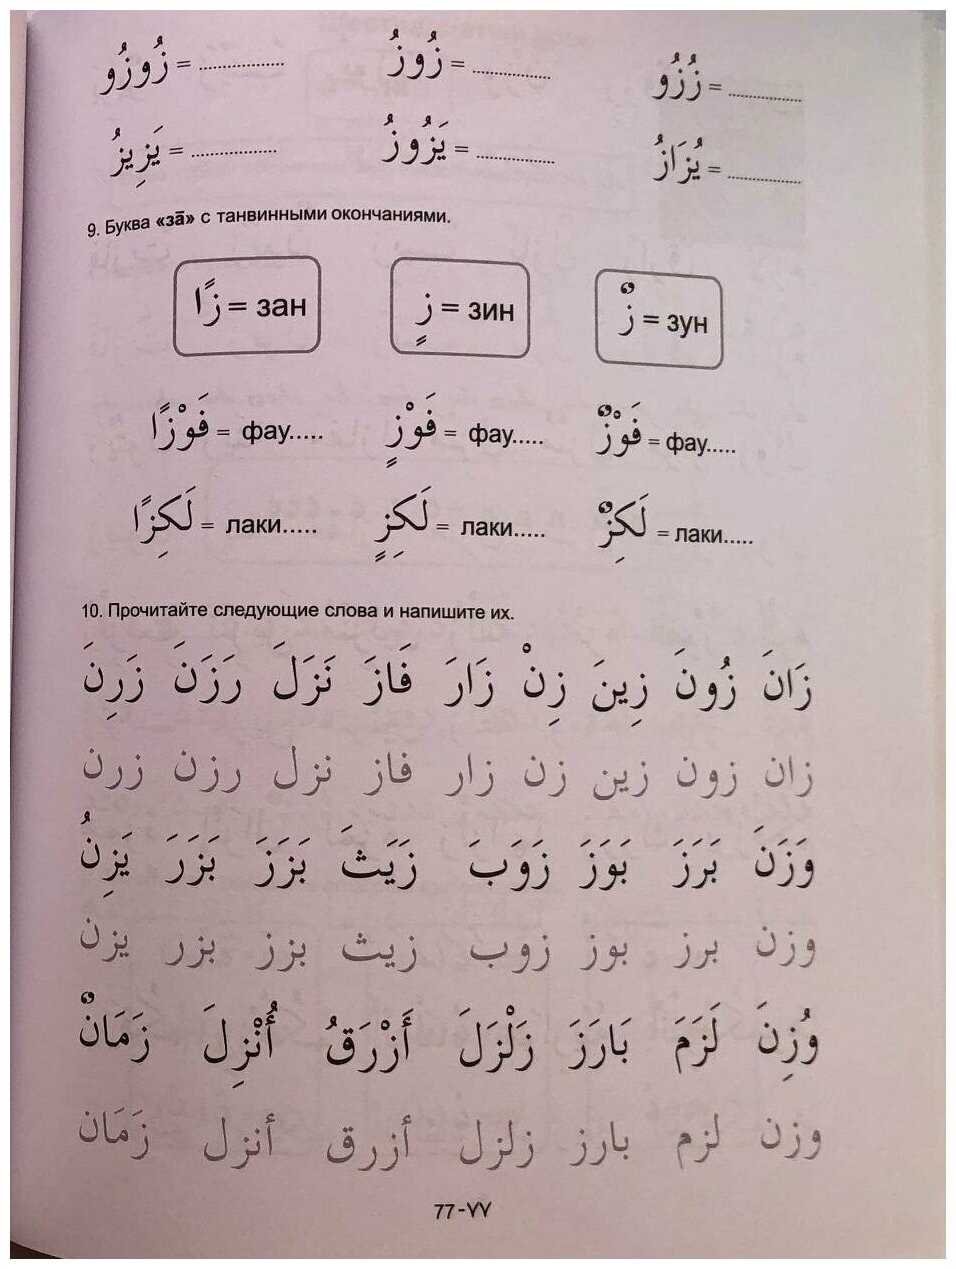 زُزُو = ............ زُوزُ = ............ زُوزُو = ............
يُزَازُ = ............ يَزُوزُ = ............ يَزِيزُ = ............
9. Буква «зā» с танвинными окончаниями.
زًا = зан زٍ = зин زٌ = зун
فَوْزًا = фау..... فَوْزٍ = фау..... فَوْزٌ = фау.....
لَكِزًا = лаки..... لَكِزٍ = лаки..... لَكِزٌ = лаки.....
10. Прочитайте следующие слова и напишите их.
زَانَ زُونَ زِينَ زِنْ زَارَ فَازَ نَزَلَ رَزَنَ زَرِنَ
زان زون زين زن زار فاز نزل رزن زرن
وَزَنَ بَرَزَ بَوَزَ زَوَبَ زَيَثَ بَزَزَ بَزَرَ يَزِنُ
وزن برز بوز زوب زيث بزز بزر يزن
وُزِنَ لَزَمَ بَارَزَ زَلْزَلَ أَزْرَقُ أُنْزِلَ زَمَانٌ
وزن لزم بارز زلزل أزرق أنزل زَمَان
77-٧٧